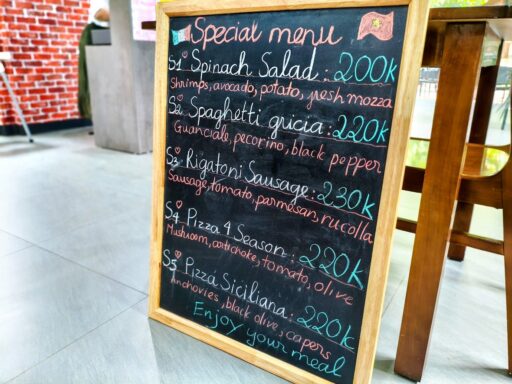 Special menu
S1 Spinach Salad : 200k
Shrimps, avocado, potato, fresh mozza
S2 Spaghetti gricia : 220k
Guanciale, pecorino, black pepper
S3 Rigatoni Sausage : 230k
Sausage, tomato, parmesan, rucolla
S4 Pizza 4 Season : 220k
Mushroom, artichoke, tomato, olive
S5 Pizza Siciliana : 220k
Anchovies, black olive, capers
Enjoy your meal